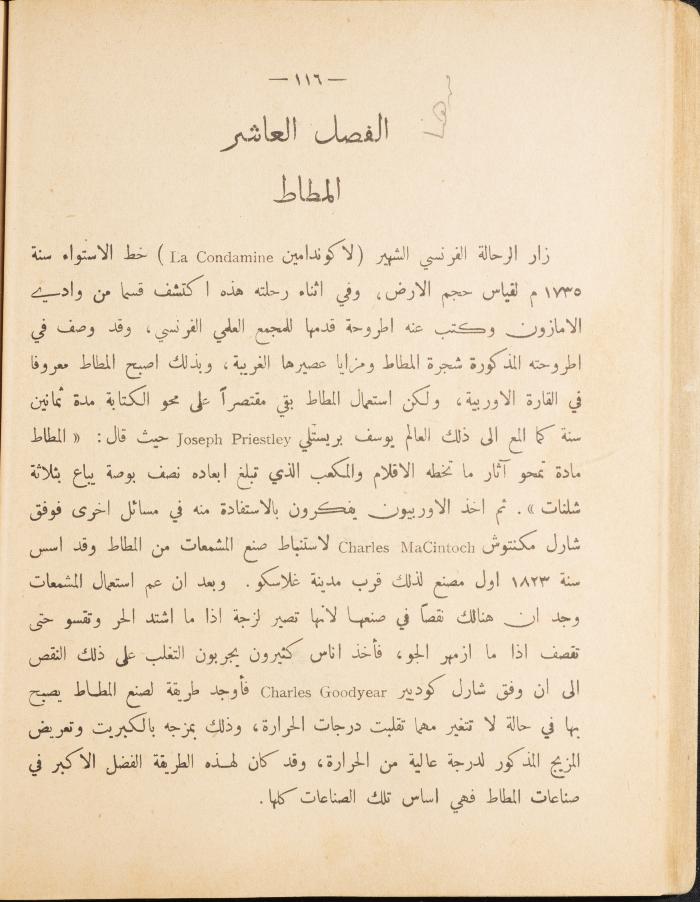 — ١١٦ —
الفصل العاشر
المطاط
زار الرحالة الفرنسي الشهير (لاكوندامين La Condamine) خط الاستواء سنة
١٧٣٥ م لقياس حجم الارض، وفي اثناء رحلته هذه اكتشف قسما من وادي
الامازون وكتب عنه اطروحة قدمها للمجمع العلمي الفرنسي، وقد وصف في
اطروحته المذكورة شجرة المطاط ومزايا عصيرها الغريبة، وبذلك اصبح المطاط معروفا
في القارة الاوربية، ولكن استعمال المطاط بقي مقتصراً على محو الكتابة مدة ثمانين
سنة كما المع الى ذلك العالم يوسف بريستلي Joseph Priestley حيث قال: « المطاط
مادة تمحو آثار ما تخطه الاقلام والمكعب الذي تبلغ ابعاده نصف بوصة يباع بثلاثة
شلنات ». ثم اخذ الاوربيون يفكرون بالاستفادة منه في مسائل اخرى فوفق
شارل مكنتوش Charles MaCintoch لاستنباط صنع المشمعات من المطاط وقد اسس
سنة ١٨٢٣ اول مصنع لذلك قرب مدينة غلاسكو. وبعد ان عم استعمال المشمعات
وجد ان هنالك نقصاً في صنعها لانها تصير لزجة اذا ما اشتد الحر وتقسو حتى
تقصف اذا ما ازمهر الجو، فأخذ اناس كثيرون يجربون التغلب على ذلك النقص
الى ان وفق شارل كوديير Charles Goodyear فأوجد طريقة لصنع المطاط يصبح
بها في حالة لا تتغير مهما تقلبت درجات الحرارة، وذلك بمزجه بالكبريت وتعريض
المزيج المذكور لدرجة عالية من الحرارة، وقد كان لهذه الطريقة الفضل الاكبر في
صناعات المطاط فهي اساس تلك الصناعات كلها.